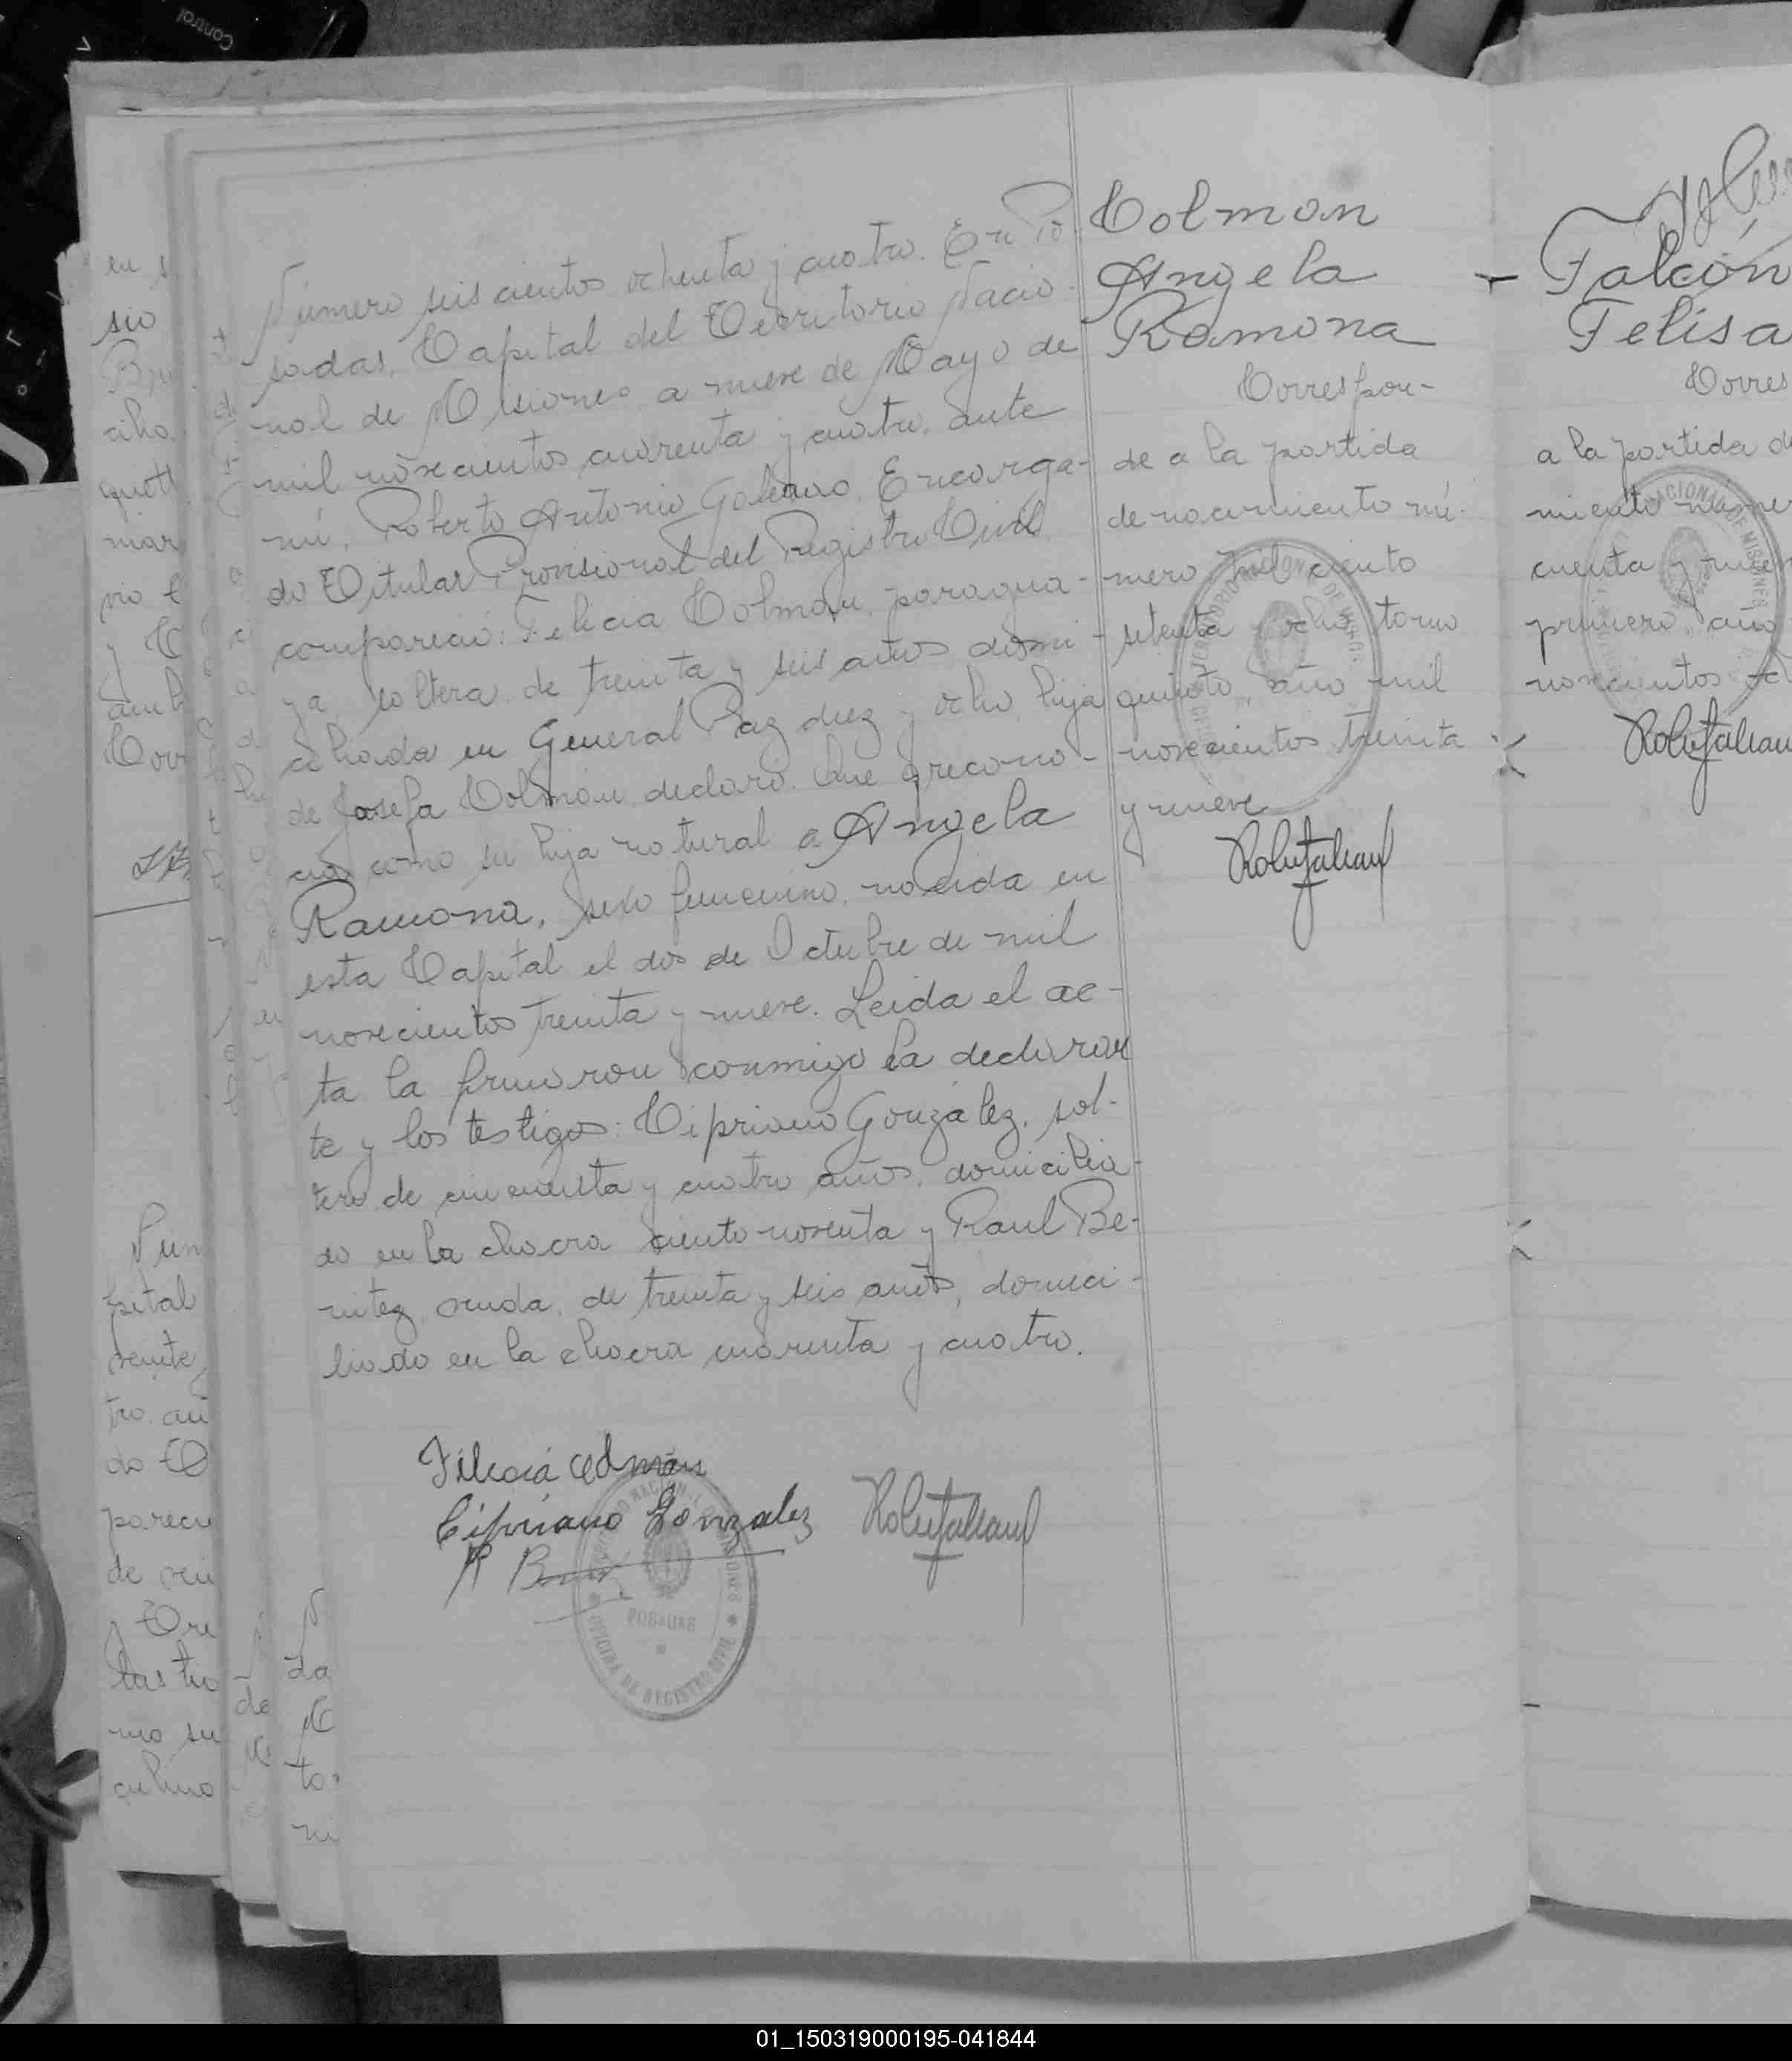 Número seiscientos ochenta y cuatro. En Po
sadas, Capital del Territorio Nacio
nal de Misiones a nueve de Mayo de
mil novecientos cuarenta y cuatro, ante
mí, Roberto Antonio Galeano, Encarga-
do Titular Provisional del Registro Civil
compareció: Felicia Colmán, paragua-
ya, soltera, de treinta y seis años domi-
ciliada en General Paz diez y ocho, hija
de Josefa Colmán, declaró: Que recono-
cía como su hija natural a Angela
Ramona, sexo femenino, nacida en
esta Capital el dos de Octubre de mil
novecientos treinta y nueve. Leida el ac-
ta la firmaron conmigo la declaran
te y los testigos: Cipriano González, sol-
tero de cincuenta y cuatro años, domicilia-
do en la chacra ciento noventa y Raul Be-
nitez, viuda, de treinta y seis años, domici-
liado en la chacra cuarenta y cuatro.
Felicia Colmán
Cipriano Gonzalez
Colman
Angela
Ramona
Correspon-
de a la partida
de nacimiento nú-
mero mil ciento
setenta y ocho, tomo
quinto, año mil
novecientos treinta
y nueve
Falcón
Felisa
Corres
a la partida d
miento numer
cuenta y nue
primero año
novecientos
POSADAS
OFICINA DE REGISTRO CIVIL
en s
sio
pital
do T
parecu
las tro
mo su
Control
01_150319000195-041844